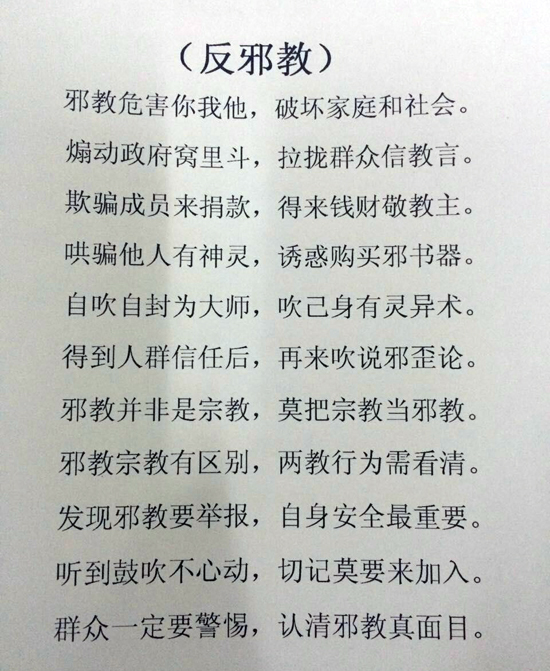 （反邪教）
邪教危害你我他，破坏家庭和社会。
煽动政府窝里斗，拉拢群众信教言。
欺骗成员来捐款，得来钱财敬教主。
哄骗他人有神灵，诱惑购买邪书器。
自吹自封为大师，吹己身有灵异术。
得到人群信任后，再来吹说邪歪论。
邪教并非是宗教，莫把宗教当邪教。
邪教宗教有区别，两教行为需看清。
发现邪教要举报，自身安全最重要。
听到鼓吹不心动，切记莫要来加入。
群众一定要警惕，认清邪教真面目。